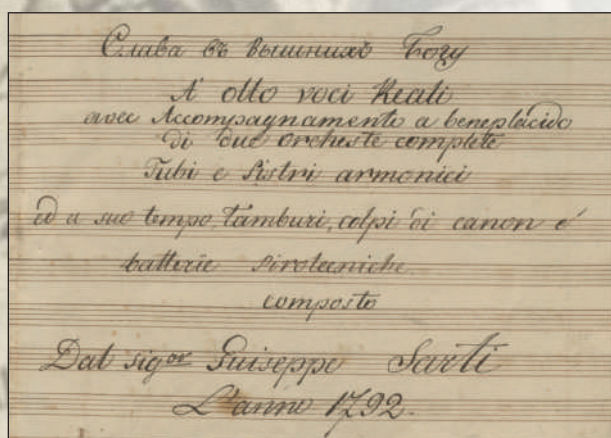 Слава въ вышнихъ Богу
A' otto voci Reali
avec Accompagnamento a beneplacido
di due orcheste complete
Tubi e Sistri armonici
ed a suo tempo, tamburi, colpi di canon é
batterie Pirotecniche.
composto
Dal sigor Guiseppe Sarti
L'anno 1792.